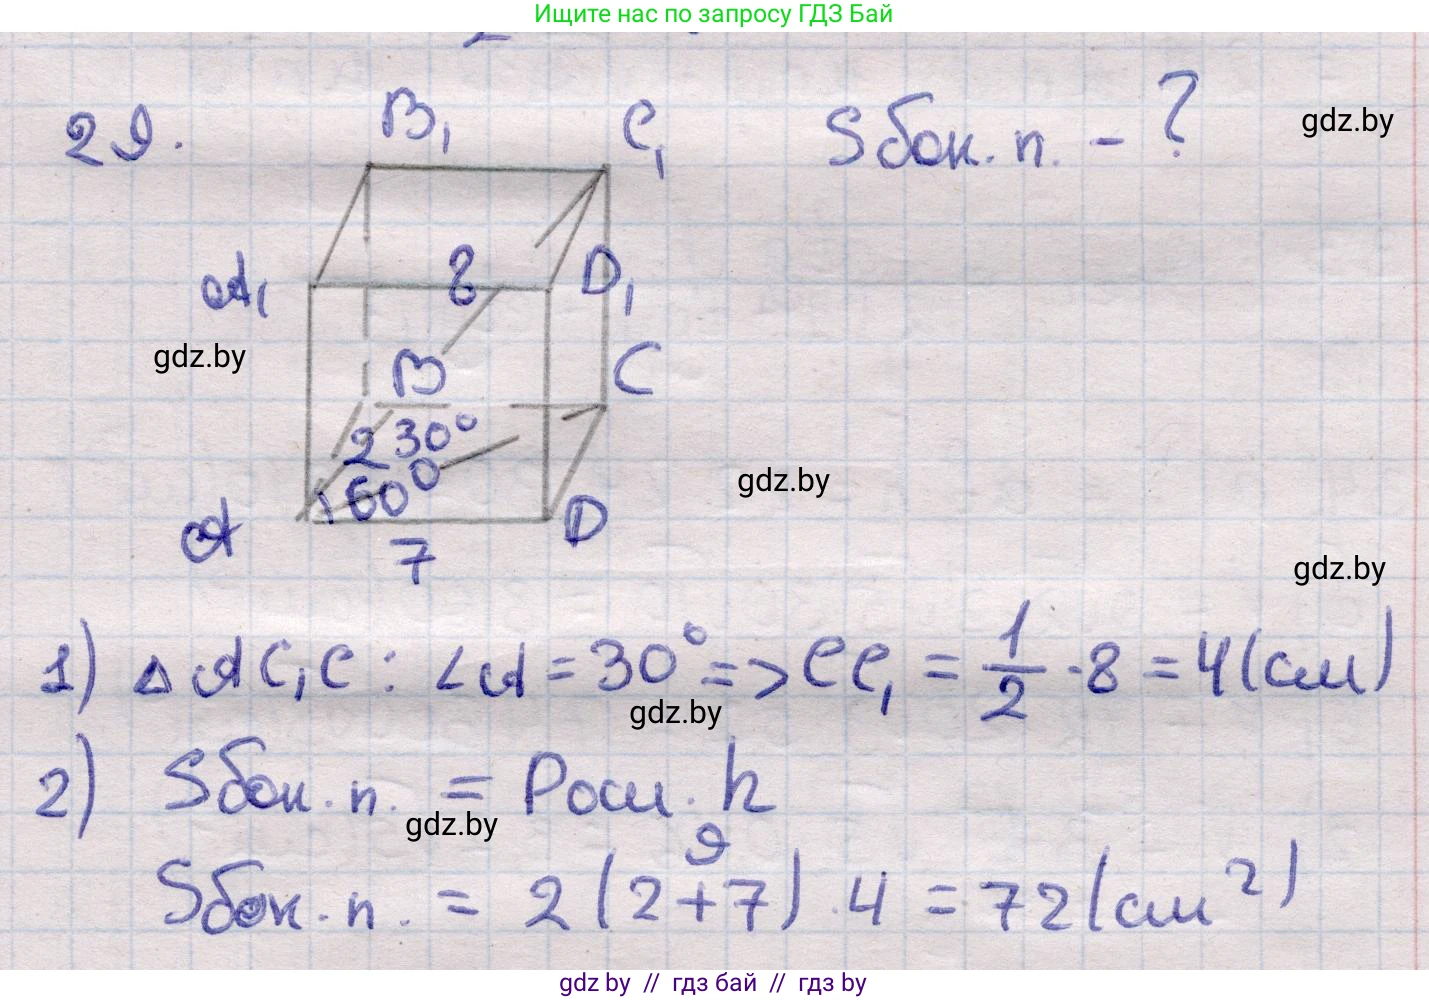 Ищите нас по запросу ГДЗ Бай
29.
B₁
C₁
Sбок. п. - ?
gdz.by
A₁
8
D₁
gdz.by
B
C
2 30°
60°
gdz.by
A
D
7
gdz.by
1) △ AC₁C : ∠A = 30° => CC₁ = 1/2 · 8 = 4 (см)
gdz.by
2) Sбок. п. = Pосн. h
gdz.by
9
Sбок. п. = 2 (2+7) · 4 = 72 (см²)
gdz.by // гдз бай // гдз by